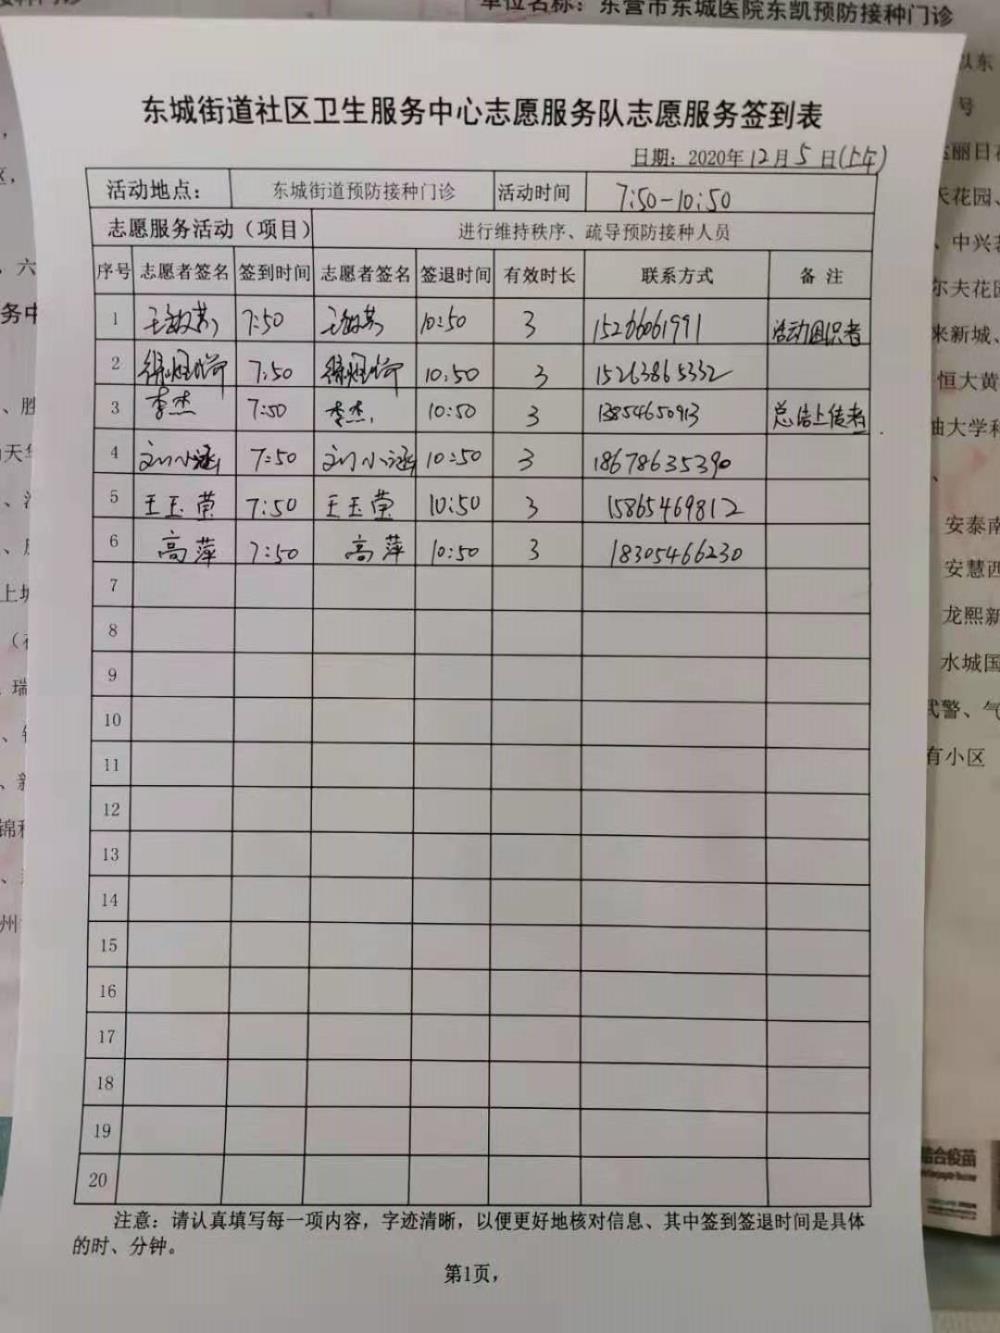 接种门诊
单位名称：东营市东城医院东凯预防接种门诊
东城街道社区卫生服务中心志愿服务队志愿服务签到表
日期：2020年12月5日(上午)
活动地点： 东城街道预防接种门诊 活动时间 7:50-10:50
志愿服务活动（项目） 进行维持秩序、疏导预防接种人员
序号 志愿者签名 签到时间 志愿者签名 签退时间 有效时长 联系方式 备 注
1 7:50 10:50 3 15266061991
2 7:50 10:50 3 15263865332
3 李杰 7:50 李杰 10:50 3 13854650913 总结上传者
4 刘小涵 7:50 刘小涵 10:50 3 18678635390
5 王玉莹 7:50 王玉莹 10:50 3 15865469812
6 高萍 7:50 高萍 10:50 3 18305466230
7
8
9
10
11
12
13
14
15
16
17
18
19
20
注意：请认真填写每一项内容，字迹清晰，以便更好地核对信息、其中签到签退时间是具体
的时、分钟。
第1页，
以东
号
丽日花
天花园、
、中兴
尔夫花园
来新城、
恒大黄
油大学
安泰南
安慧西
龙熙新
水城国
武警、气
有小区
结合疫苗